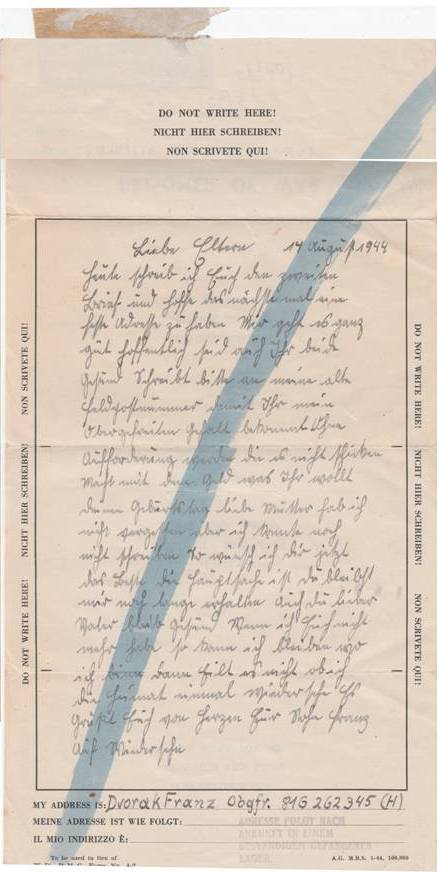 DO NOT WRITE HERE!
NICHT HIER SCHREIBEN!
NON SCRIVETE QUI!
Liebe Eltern 14 August 1944
Heute schreib ich Euch den zweiten
Brief und hoffe das nächste mal eine
feste Adresse zu haben Mir geht es ganz
gut hoffentlich seid auch Ihr beide
Gesund Schreibt bitte an meine alte
Feldpostnummer damit Ihr mein
Obergefreiten gehalt bekommt Ohne
Aufforderung werden die es nicht schicken
Macht mit dem Geld was Ihr wollt
deinen Geburtstag liebe Mutter hab ich
nicht vergessen aber ich konnte noch
nicht schreiben So wünsch ich dir jetzt
das Beste die Hauptsache ist du bleibst
mir noch lange erhalten Auch du lieber
Vater bleib Gesund Wenn ich Euch nicht
mehr habe so kann ich bleiben wo
ich bin dann eilt es nicht ob ich
die Heimat einmal wiedersehe Es
Grüßt Euch von Herzen Euer Sohn Franz
Auf Wiedersehn
NON SCRIVETE QUI!
NICHT HIER SCHREIBEN!
DO NOT WRITE HERE!
DO NOT WRITE HERE!
NICHT HIER SCHREIBEN!
NON SCRIVETE QUI!
MY ADDRESS IS: Dvorak Franz Obgfr. 81G 262345 (H)
MEINE ADRESSE IST WIE FOLGT:
IL MIO INDIRIZZO È:
ADRESSE FOLGT NACH
ANKUNFT IN EINEM
STAENDIGEN GEFANGENEN
LAGER.
To be used in lieu of
A.G. M.B.S. 1-44, 100,000